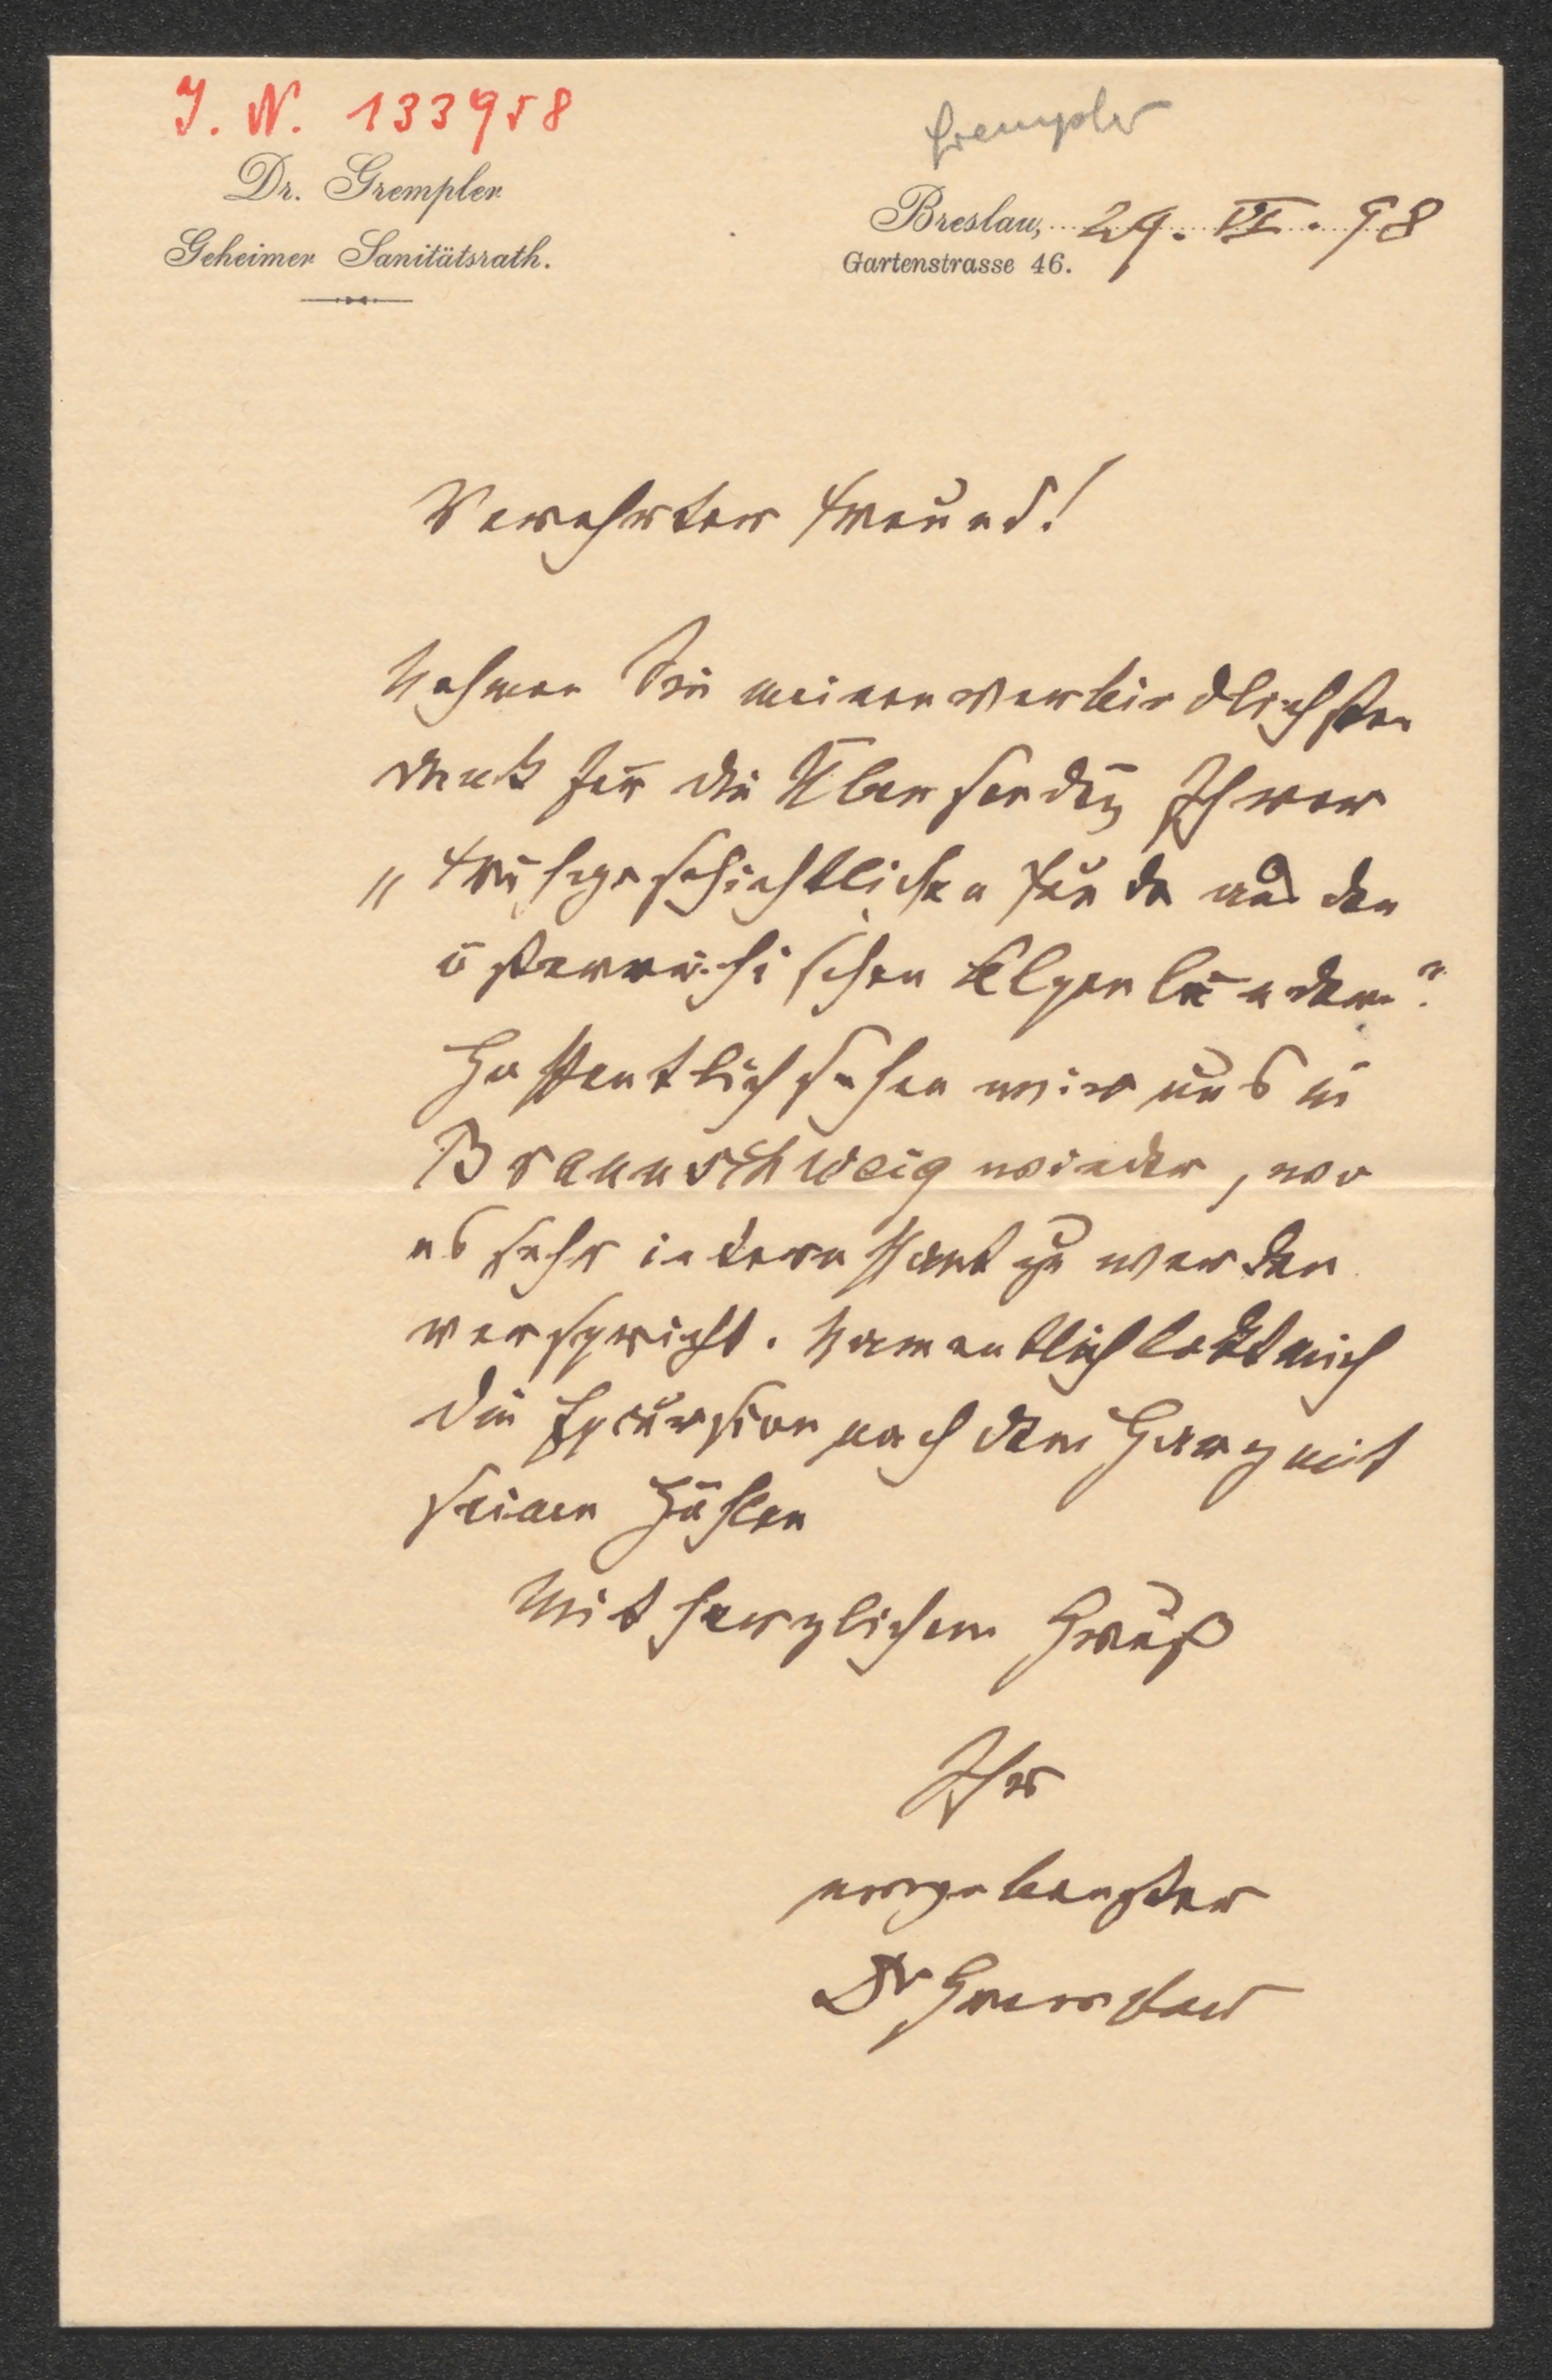 J. N. 133958
Grempler
Dr. Grempler
Geheimer Sanitätsrath.
Breslau, 29. VI. 98
Gartenstrasse 46.
Verehrter Freund!
Nehmen Sie meinen verbindlichsten
Dank für die Übersendung Ihrer
„Frühgeschichtlichen Funde aus den
österreichischen Alpenländern“.
Hoffentlich sehen wir uns in
Braunschweig wieder, wo
es sehr interessant zu werden
verspricht. Namentlich lockt mich
die Excursion nach dem Harz mit
seinen Höhlen
Mit herzlichem Gruß
Ihr
ergebenster
Dr Grempler